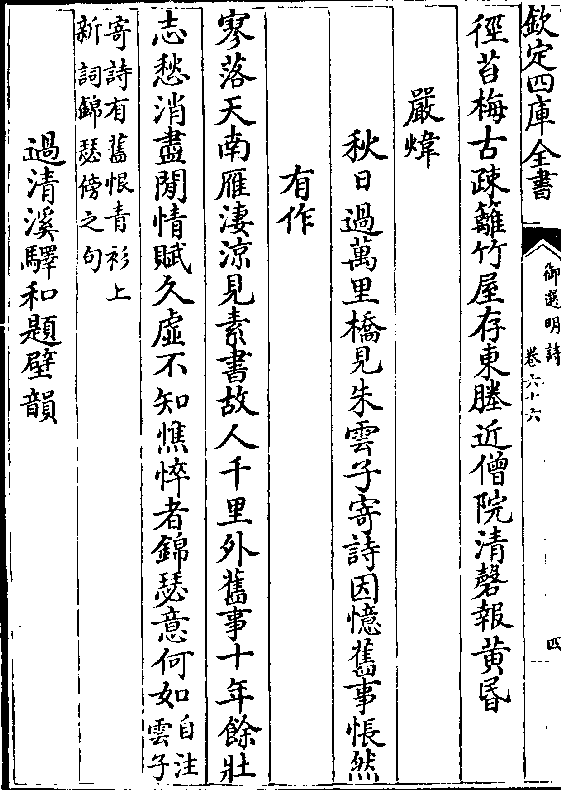 欽定四庫全書
御選明詩
卷六十六
四
徑苔梅古疎籬竹屋存東塍近僧院清磬報黄昏
嚴煒
秋日過萬里橋見朱雲子寄詩因憶舊事悵然
有作
寥落天南雁淒凉見素書故人千里外舊事十年餘壯
志愁消盡閒情賦久虛不知憔悴者錦瑟意何如自注雲子
寄詩有舊恨青衫上
新詞錦瑟傍之句
過清溪驛和題壁韻